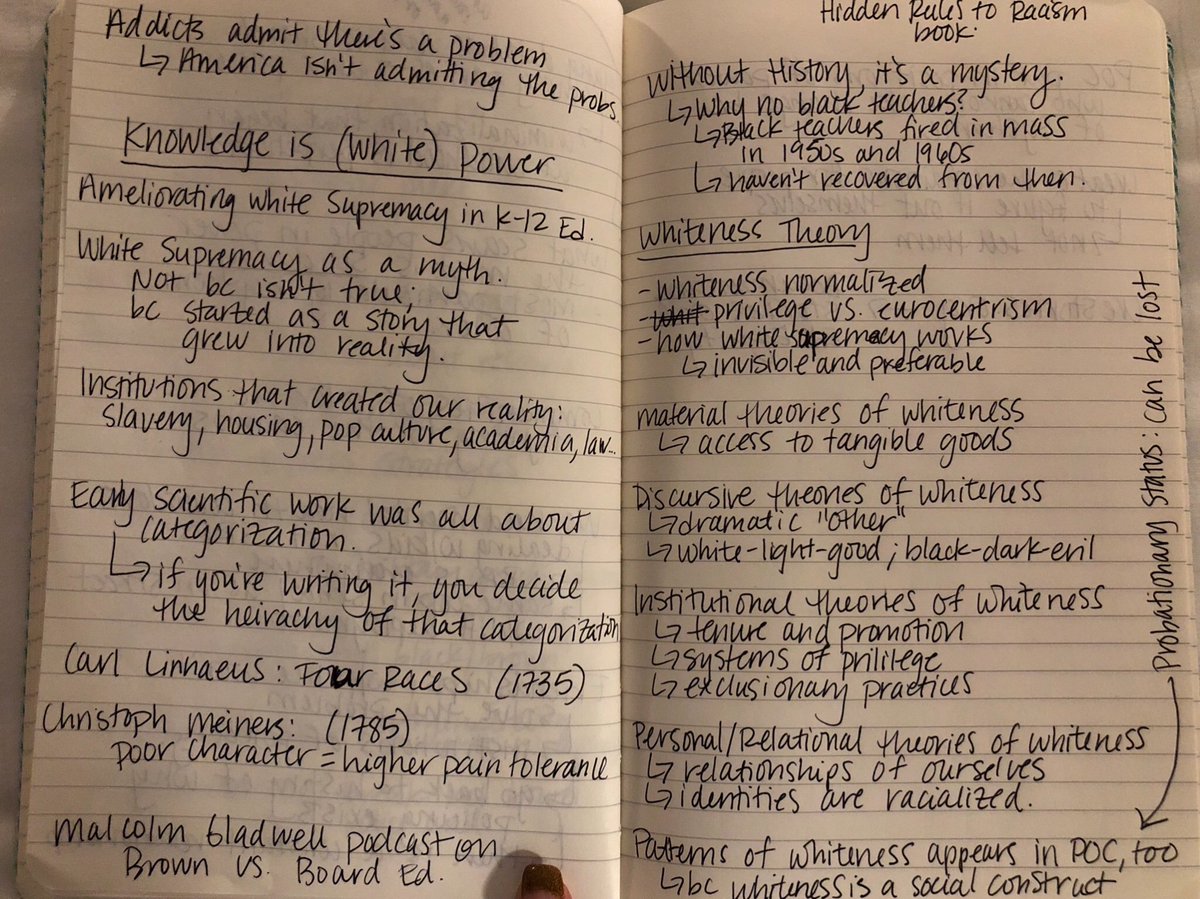 Addicts admit there's a problem
↳ America isn't admitting the probs.
Knowledge is (white) Power
Ameliorating white Supremacy in K-12 Ed.
White Supremacy as a myth.
Not bc isn't true;
bc started as a story that
grew into reality.
Institutions that created our reality:
slavery, housing, pop culture, academia, law...
Early scientific work was all about
categorization.
↳ if you're writing it, you decide
the heirachy of that categorization
Carl Linnaeus: Four Races (1735)
Christoph Meiners: (1785)
poor character = higher pain tolerance
Malcolm Gladwell podcast on
Brown vs. Board Ed.
Hidden Rules to Racism
book:
Without History, it's a mystery.
↳ Why no black teachers?
↳ Black teachers fired in mass
in 1950s and 1960s
↳ haven't recovered from then.
Whiteness Theory
- whiteness normalized
- whit privilege vs. eurocentrism
- how white supremacy works
↳ invisible and preferable
material theories of whiteness
↳ access to tangible goods
Discursive theories of whiteness
↳ dramatic "other"
↳ white-light-good; black-dark-evil
Institutional theories of whiteness
↳ tenure and promotion
↳ systems of prililege
↳ exclusionary practices
Personal/Relational theories of whiteness
↳ relationships of ourselves
↳ identities are racialized.
Patterns of whiteness appears in POC, too
↳ bc whiteness is a social construct
Probationary status: can be lost